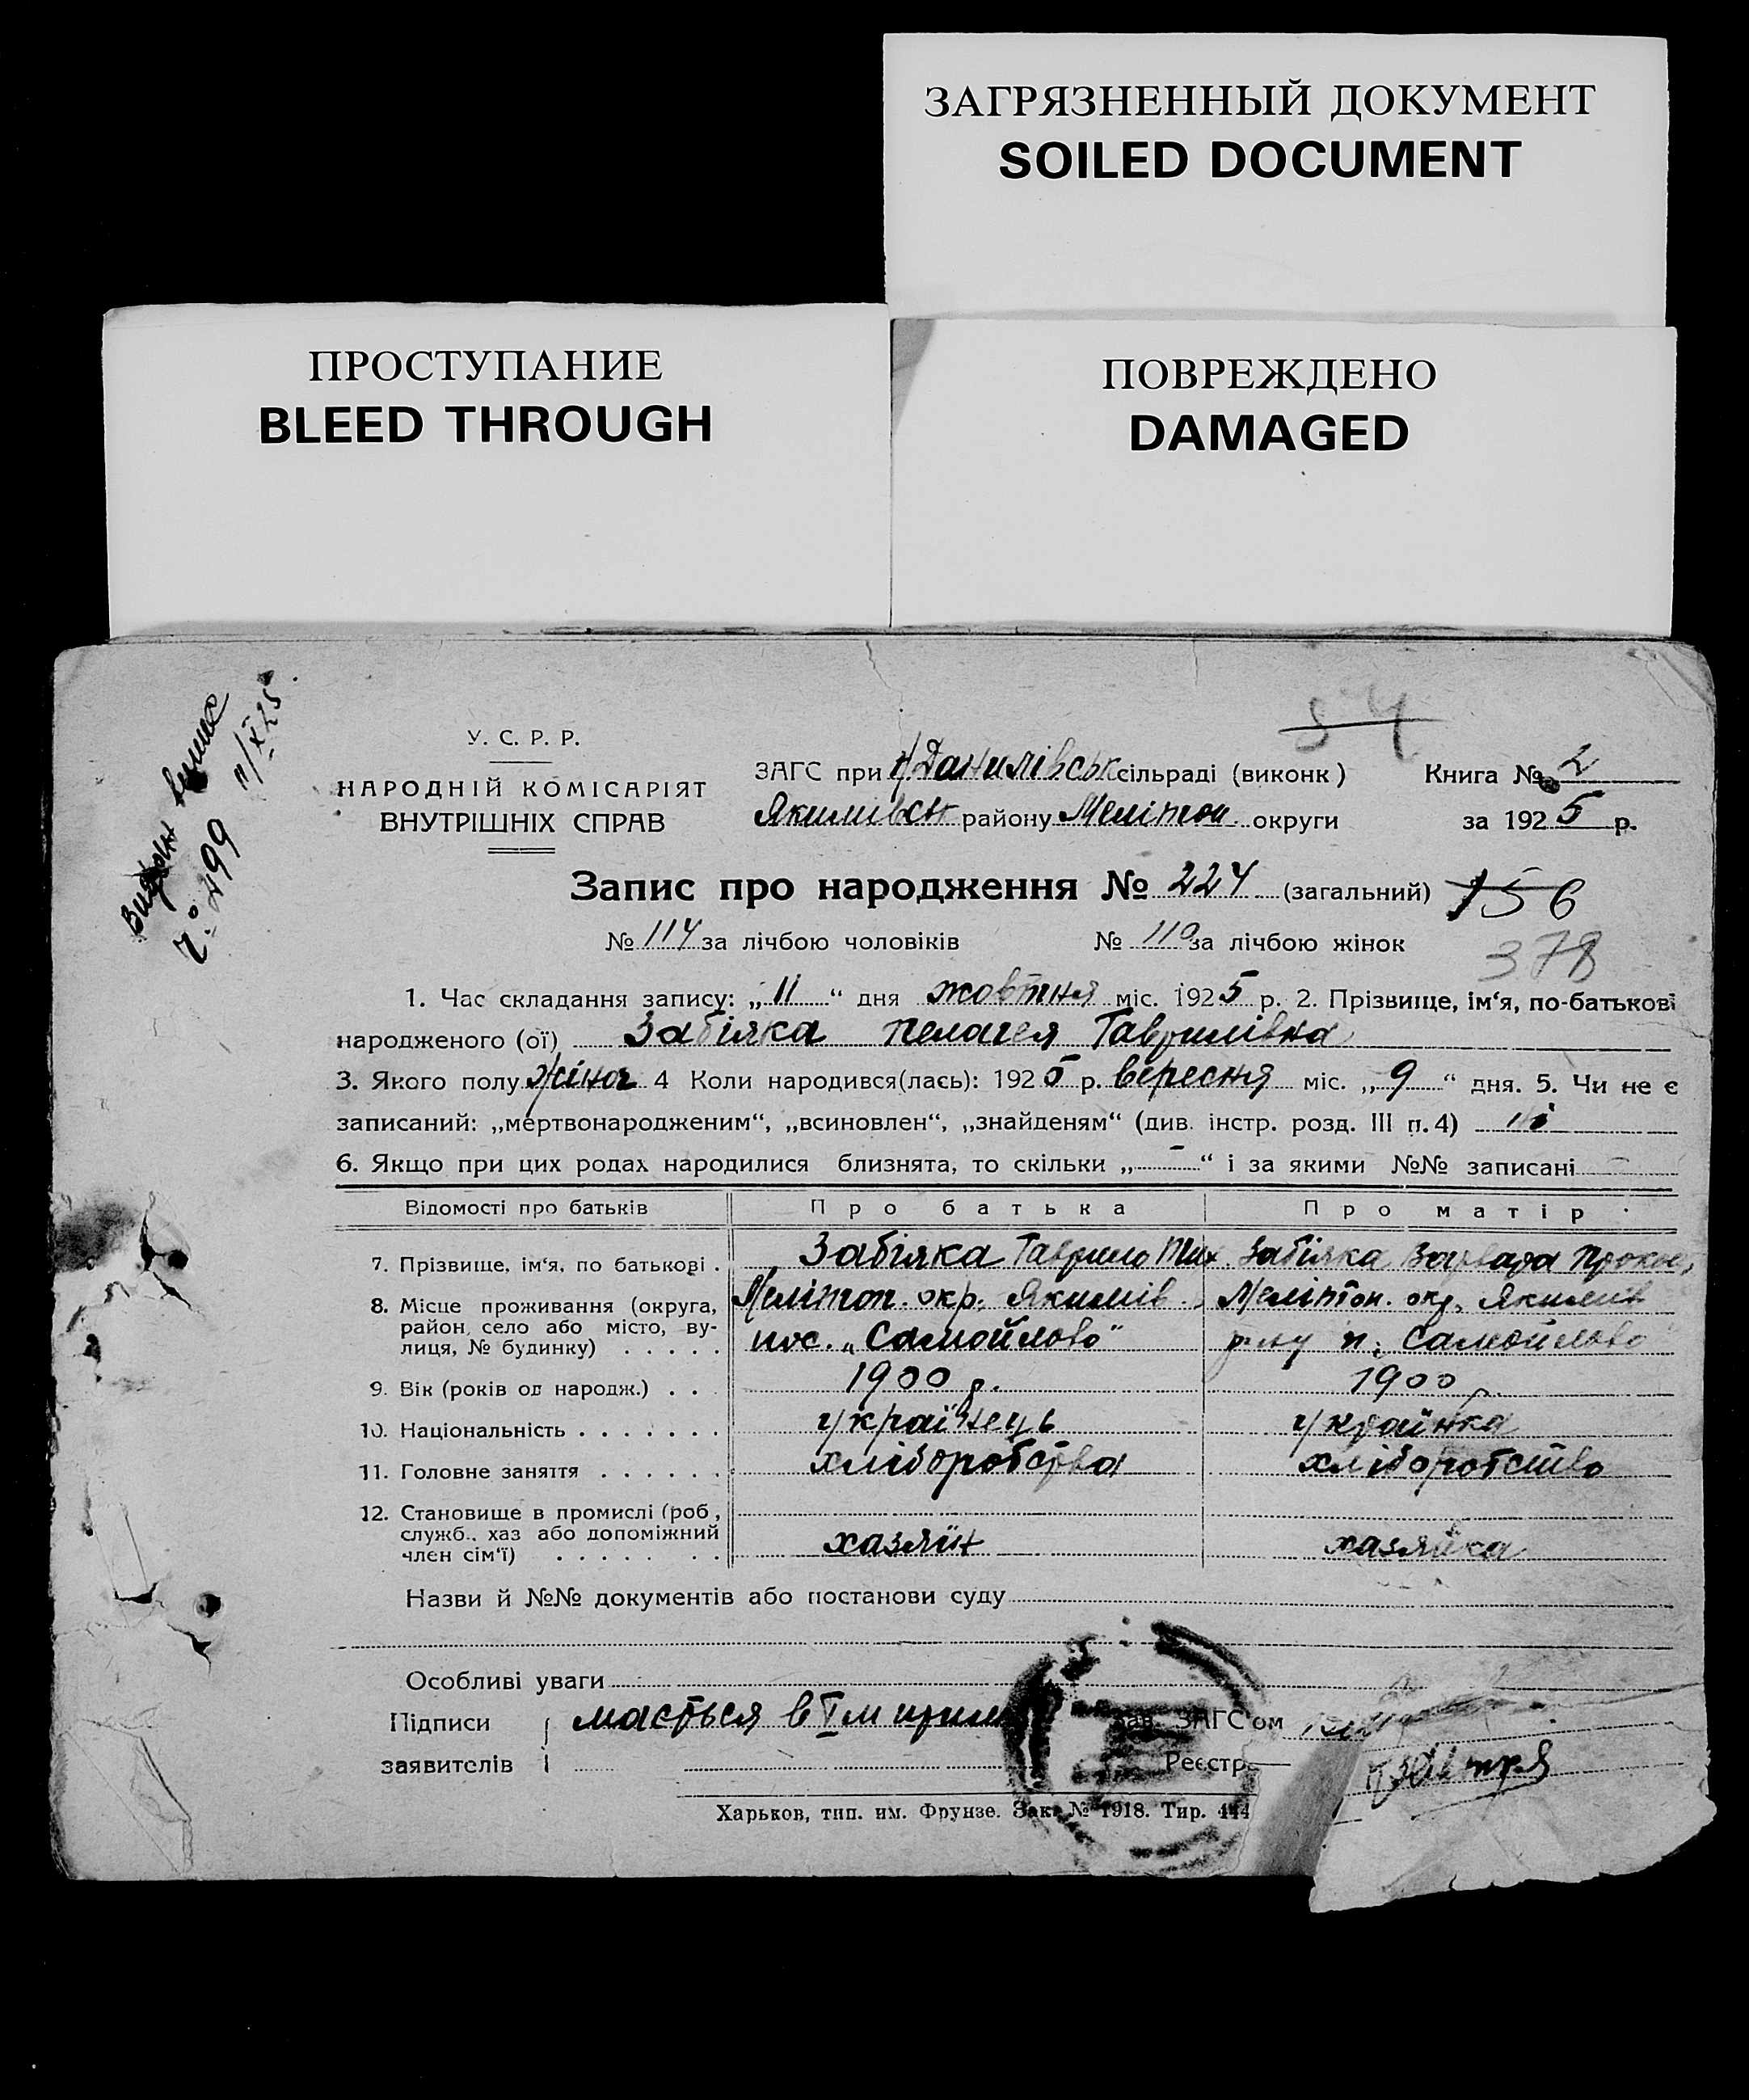 ЗАГРЯЗНЕННЫЙ ДОКУМЕНТ
SOILED DOCUMENT
ПРОСТУПАНИЕ
BLEED THROUGH
ПОВРЕЖДЕНО
DAMAGED
54
У. С. Р. Р.
НАРОДНІЙ КОМІСАРІЯТ
ВНУТРІШНІХ СПРАВ
ЗАГС при Н/Данилівськ сільраді (виконк)
Якимівськ району Мелітоп. округи
Книга № 2
за 1925 р.
11/X 25
№ 499
Запис про народження № 224 (загальний) 156
№ 114 за лічбою чоловіків № 110 за лічбою жінок
378
1. Час складання запису: „11“ дня жовтня міс. 1925 р. 2. Прізвище, ім‘я, по-батькові
народженого (ої) Забіяка Пелагея Гаврилівна
3. Якого полу жіноч 4 Коли народився(лась): 1925 р. вересня міс. „9“ дня. 5. Чи не є
записаний: „мертвонародженим“, „всиновлен“, „знайденям“ (див. інстр. розд. III п. 4) ні
6. Якщо при цих родах народилися близнята, то скільки „-“ і за якими №№ записані -
Відомості про батьків Про батька Про матір
7. Прізвище, ім‘я, по батькові . Забіяка Гаврило Тих. Забіяка Варвара Проков.
8. Місце проживання (округа, район, село або місто, вулиця, № будинку) . . . . .
Мелітоп. окр. Якимів. Мелітоп. окр. Якимів
пос. „Самойлово“ р-ну п. Самойлово
9. Вік (років од народж.) . . . 1900 р. 1900 р.
10. Національність . . . . . . . українець українка
11. Головне заняття . . . . . . хліборобства хліборобство
12. Становище в промислі (роб., служб., хаз або допоміжний член сім‘ї) . . . . . . . хазяїн хазяйка
Назви й №№ документів або постанови суду
Особливі уваги
Підписи мається в I м прим Зав. ЗАГС‘ом
заявителів Реєстр
Харьков, тип. им. Фрунзе. Зак. № 1918. Тир. 444